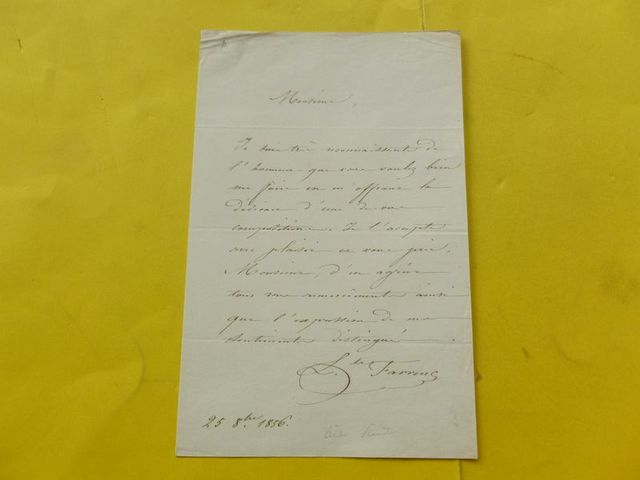 Monsieur,
Je suis très reconnaissante de
l'honneur que vous voulez bien
me faire en m'offrant la
dédicace d'une de vos
compositions. Je l'accepte
avec plaisir et vous prie,
Monsieur, d'en agréer
tous mes remerciements ainsi
que l'expression de mes
sentiments distingués.
L. Farrenc
25 8.bre 1856.